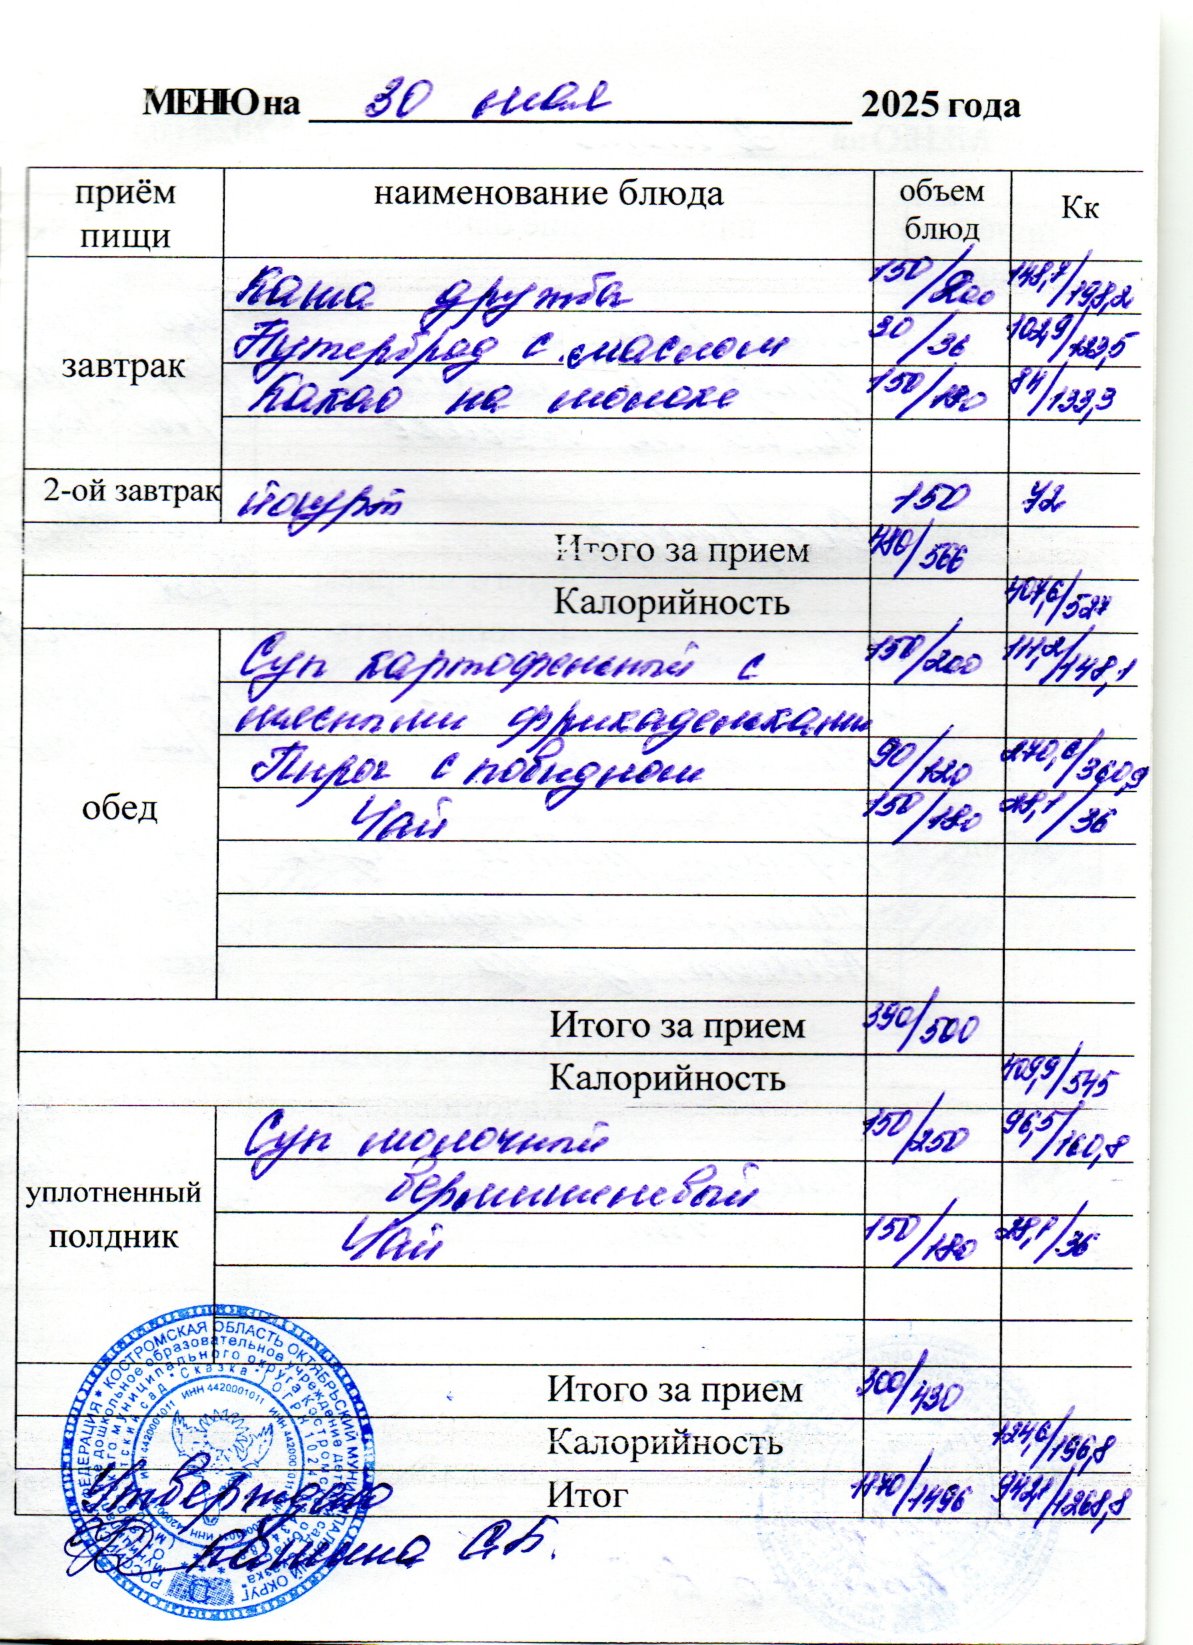 МЕНЮ на 30 мая 2025 года
приём пищи наименование блюда объем блюд Кк
завтрак
Каша дружба 150/200 148,7/198,2
Бутерброд с маслом 30/36 102,9/123,5
Какао на молоке 150/180 84/133,3
2-ой завтрак йогурт 150 72
Итого за прием 480/566
Калорийность 407,6/527
обед
Суп картофельный с 150/200 111,2/148,1
мясными фрикадельками
Пирог с повидлом 90/120 270,6/360,9
Чай 150/180 28,1/36
Итого за прием 390/500
Калорийность 409,9/545
уплотненный полдник
Суп молочный 150/250 96,5/160,8
вермишелевый
Чай 150/180 28,1/36
Итого за прием 300/430
Калорийность 124,6/196,8
Итог 1170/1496 942,1/1268,8
Утверждаю
С.Б.
КОСТРОМСКАЯ ОБЛАСТЬ ОКТЯБРЬСКИЙ МУНИЦИПАЛЬНЫЙ ОКРУГ
дошкольное образовательное учреждение
муниципального округа Костромской
"Сказка"
ИНН 4420001011